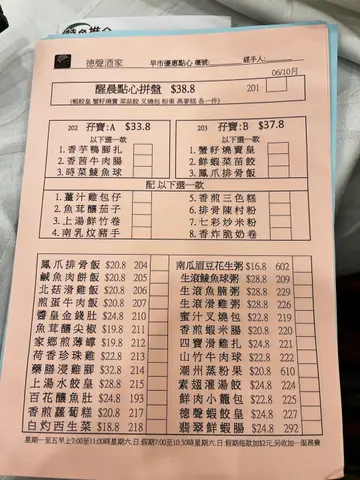 德聲酒家 早市優惠點心 櫃號: 經手人:
06/10月
醒晨點心拼盤 $38.8 201
(蝦餃皇 蟹籽燒賣 菜苗餃 叉燒包 粉果 燕麥糕 各一件)
202 孖寶:A $33.8
以下選一款
1.香芋鴨腳扎
2.香茜牛肉腸
3.時菜鯪魚球
203 孖寶:B $37.8
以下選一款
1.蟹籽燒賣皇
2.鮮蝦菜苗餃
3.鳳爪排骨飯
配 以下選一款
1.薑汁雞包仔
2.魚茸釀茄子
3.上湯鮮竹卷
4.南乳炆豬手
5.香煎三色糕
6.排骨陳村粉
7.七彩炒米粉
8.香炸脆奶卷
鳳爪排骨飯 $20.8 204
鹹魚肉餅飯 $20.8 205
北菇滑雞飯 $20.8 206
煎蛋牛肉飯 $20.8 207
醬皇金錢肚 $24.8 210
魚茸釀尖椒 $19.8 211
家鄉煎薄罉 $19.8 212
荷香珍珠雞 $22.8 213
藥膳浸雞腳 $22.8 214
上湯水餃皇 $28.8 215
百花釀魚肚 $24.8 193
香煎蘿蔔糕 $20.8 217
白灼西生菜 $18.8 218
南瓜眉豆花生粥 $16.8 602
生滾鯪魚球粥 $20.8 209
生滾魚腩粥 $20.8 229
生滾滑雞粥 $20.8 226
蜜汁叉燒包 $20.8 219
香煎蝦米腸 $20.8 220
四寶滑雞扎 $24.8 221
山竹牛肉球 $22.8 222
潮州蒸粉果 $20.8 610
素翅灌湯餃 $24.8 224
鮮肉小籠包 $22.8 225
德聲蝦餃皇 $24.8 227
翡翠鮮蝦腸 $24.8 292
星期一至五早上7:00至11:00時星期六.日.假期7:00至10:30時星期六.日.假期每款加$2元,另收加一服務費